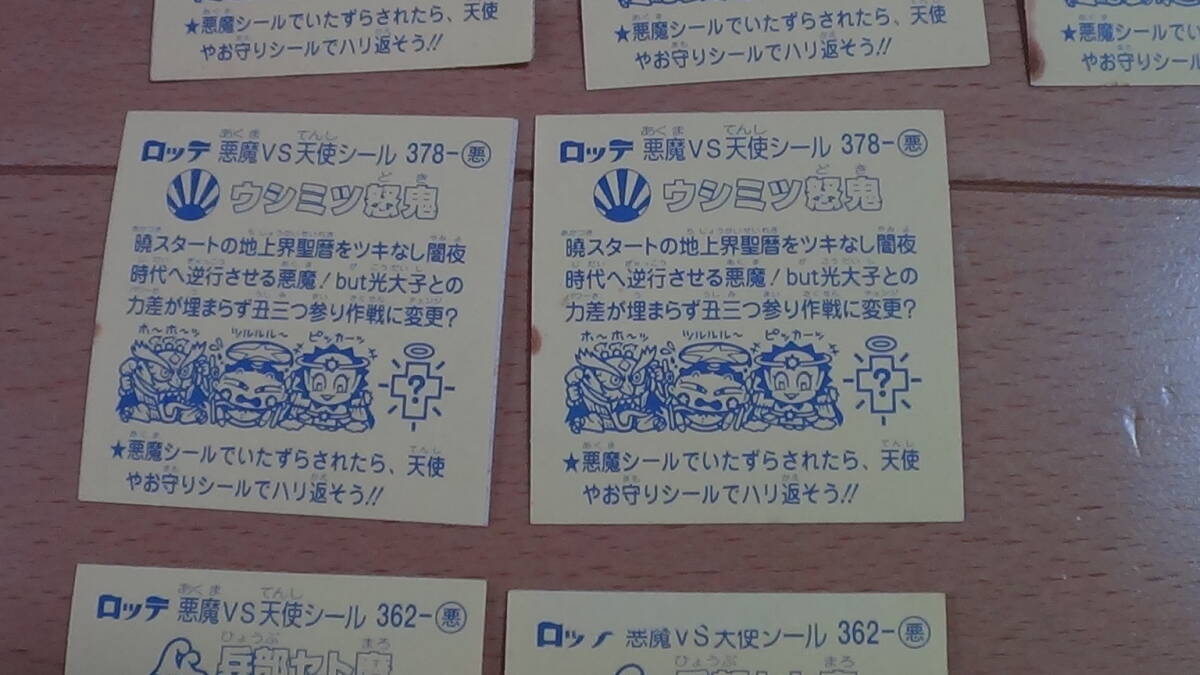 ★悪魔シールでいたずらされたら、天使
やお守りシールでハリ返そう!!
★悪魔シールでいたずらされたら、天使
やお守りシールでハリ返そう!!
★悪魔シールでい
やお守りシール
ロッテ 悪魔VS天使シール 378-悪
ウシミツ怒鬼
暁スタートの地上界聖暦をツキなし闇夜
時代へ逆行させる悪魔!but光大子との
力差が埋まらず丑三つ参り作戦に変更?
ホ〜ホ〜ッ ツルルル〜 ピッカーッ
?
★悪魔シールでいたずらされたら、天使
やお守りシールでハリ返そう!!
ロッテ 悪魔VS天使シール 378-悪
ウシミツ怒鬼
暁スタートの地上界聖暦をツキなし闇夜
時代へ逆行させる悪魔!but光大子との
力差が埋まらず丑三つ参り作戦に変更?
ホ〜ホ〜ッ ツルルル〜 ピッカーッ
?
★悪魔シールでいたずらされたら、天使
やお守りシールでハリ返そう!!
ロッテ 悪魔VS天使シール 362-悪
兵部セト麿
ロッテ 悪魔VS天使シール 362-悪